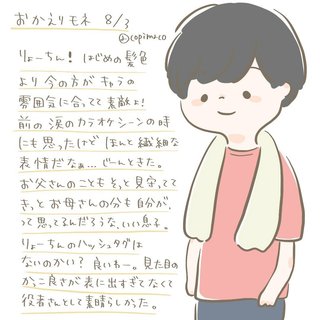 おかえりモネ 8/3
@copimaco
りょーちん! はじめの髪色
より今の方がキャラの
雰囲気に合ってて素敵よ!
前の涙のカラオケシーンの時
にも思ったけど ほんと繊細な
表情だなぁ…じーんときた。
お父さんのこともそっと見守ってて
きっとお母さんの分も自分が、
って思ってるんだろうな、いい息子。
りょーちんのハッシュタグは
ないのかい? 良いわー。見た目の
かっこ良さが表に出すぎてなくて
役者さんとして素晴らしかった。